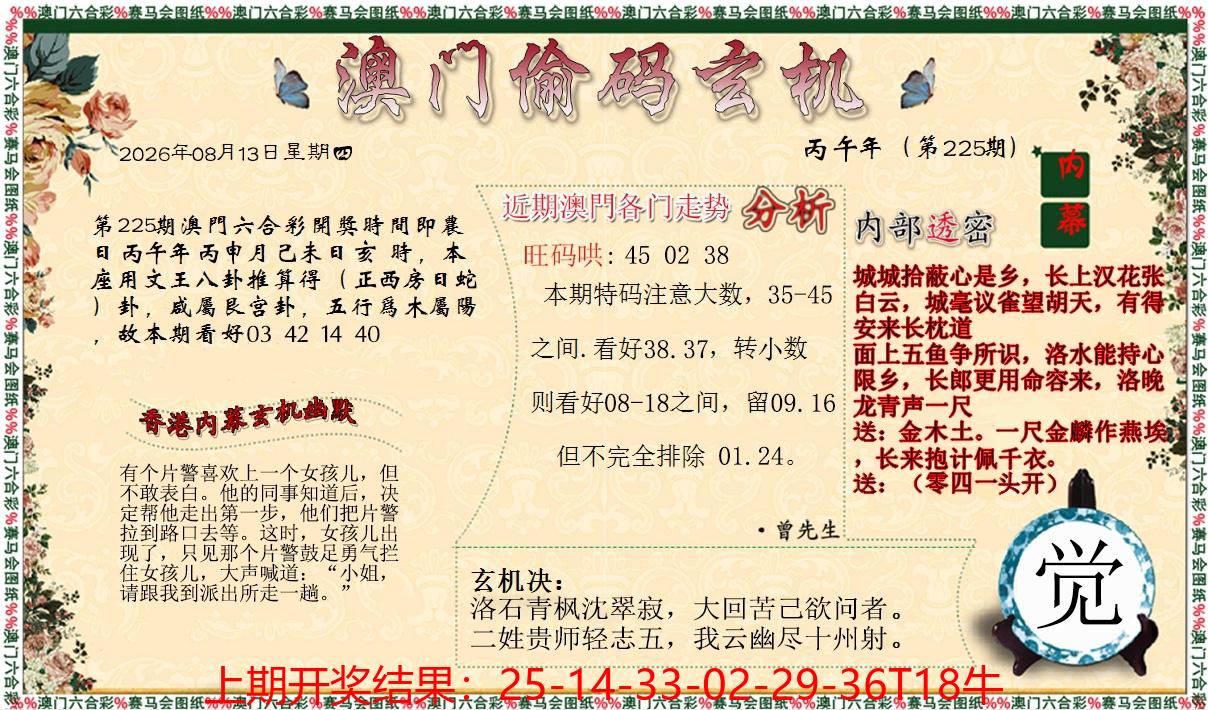 %%澳门六合彩%赛马会图纸%%澳门六合彩%赛马会图纸%%澳门六合彩%赛马会图纸%%澳门六合彩%赛马会图纸%%澳门六合彩%赛马会图纸%%澳门六合彩%赛马会图纸%%
澳门偷码玄机
2026年08月13日星期四
丙午年（第225期）
内幕
第225期澳門六合彩開獎時間即農
日丙午年丙申月己未日亥 時，本
座用文王八卦推算得（正西房日蛇
）卦，咸屬艮宫卦，五行爲木屬陽
，故本期看好03 42 14 40
香港内幕玄机幽默
有个片警喜欢上一个女孩儿，但
不敢表白。他的同事知道后，决
定帮他走出第一步，他们把片警
拉到路口去等。这时，女孩儿出
现了，只见那个片警鼓足勇气拦
住女孩儿，大声喊道：“小姐，
请跟我到派出所走一趟。”
近期澳門各门走势 分析
旺码哄: 45 02 38
本期特码注意大数，35-45
之间.看好38.37，转小数
则看好08-18之间，留09.16
但不完全排除 01.24。
·曾先生
内部透密
城城拾蔽心是乡，长上汉花张
白云，城毫议雀望胡天，有得
安来长枕道
面上五鱼争所识，洛水能持心
限乡，长郎更用命容来，洛晚
龙青声一尺
送：金木土。一尺金麟作燕埃
，长来抱计佩千衣。
送：（零四一头开）
觉
玄机决：
洛石青枫沈翠寂，大回苦己欲问者。
二姓贵师轻志五，我云幽尽十州射。
上期开奖结果：25-14-33-02-29-36T18牛